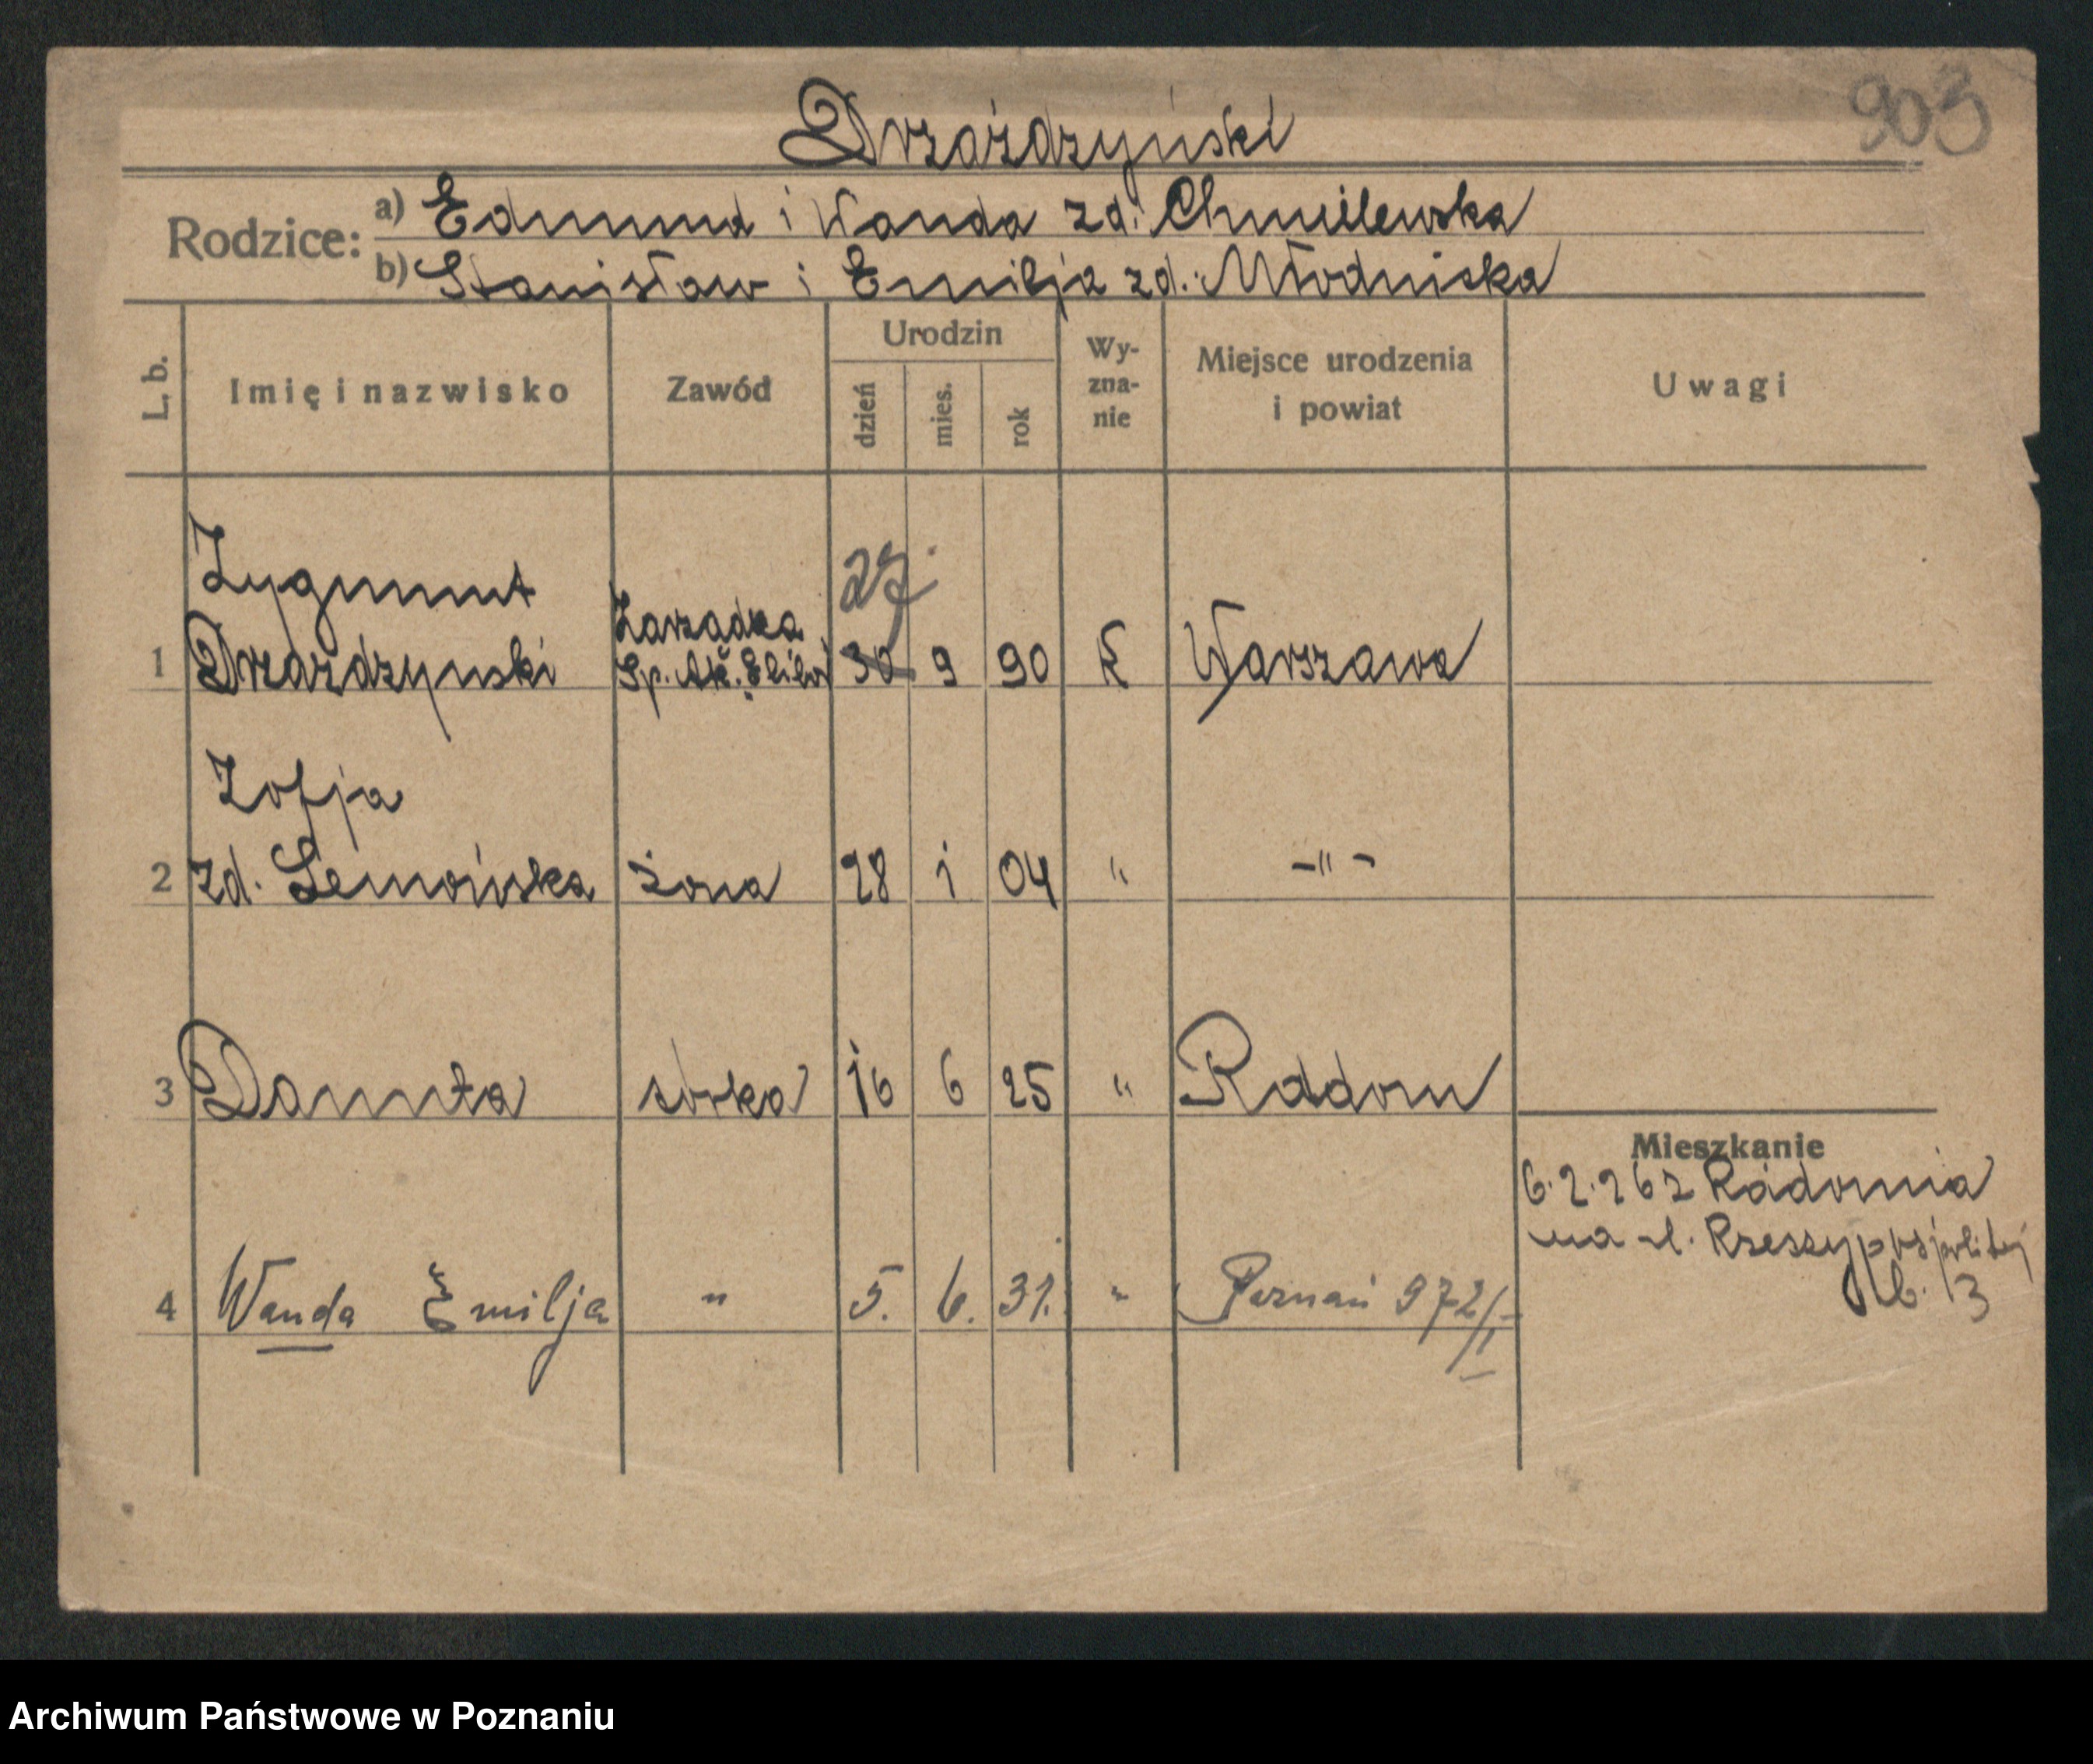 903
Drzażdzyński
Rodzice: a) Edmund i Wanda zd. Chmielewska
b) Stanisław i Emilja zd. Młodniska
L. b.
Imię i nazwisko
Zawód
Urodzin
dzień
mies.
rok
Wy-
zna-
nie
Miejsce urodzenia
i powiat
Uwagi
Zygmunt
27.
Zarządca
1 Drzażdzynski Sp. Ak. 30 9 90 k Warszawa
Zofja
2 zd. żona 28 i 04 " -"-
3 Danuta córka 16 6 25 " Radom
Mieszkanie
6.2.26 z Radomia
na ul. Rzeszypospolitej
Nb. 3
4 Wanda Emilja " 5. 6. 31. " Poznań 972/I
Archiwum Państwowe w Poznaniu